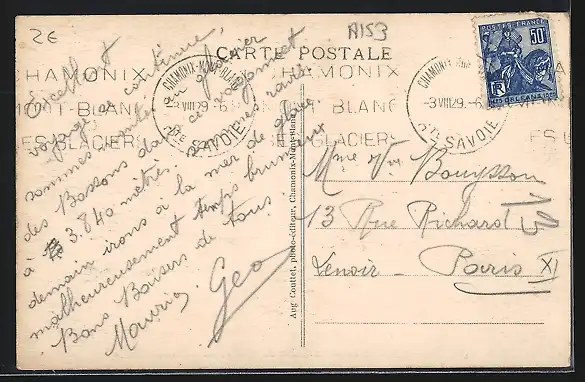 2E
A153
CARTE POSTALE
Excellent
voyage et continue
sommes montés au glacier
des Bossons dans ce
à 3.840 mètres sommes ravis
demain irons à la mer de glace
malheureusement temps brumeux
Bons Baisers de tous
Mauric Geo
Aug Couttet, photo-éditeur, Chamonix-Mont-Blanc
CHAMONIX
MONT-BLANC
SES GLACIERS
CHAMONIX-MONT-BLANC
-3 VIII 29 -6
HTE SAVOIE
HAMONIX
T BLANC
GLACIERS
CHAMONIX
3 VIII 29 -6
HTE SAVOIE
POSTES FRANÇAISES
50c
RF
ORLÉANS
Mme Vve Bouysson
13 Rue Richard
Lenoir - Paris XI
13